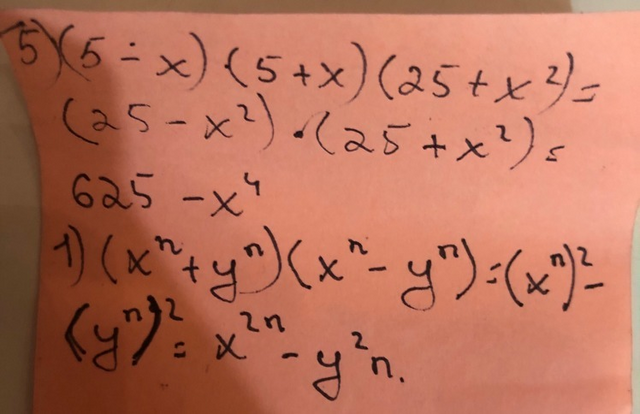 5) (5 - x) · (5 + x) (25 + x²) =
(25 - x²) · (25 + x²) =
625 - x⁴
1) (xⁿ + yⁿ) (xⁿ - yⁿ) = (xⁿ)² -
(yⁿ)² = x²ⁿ - y²n.